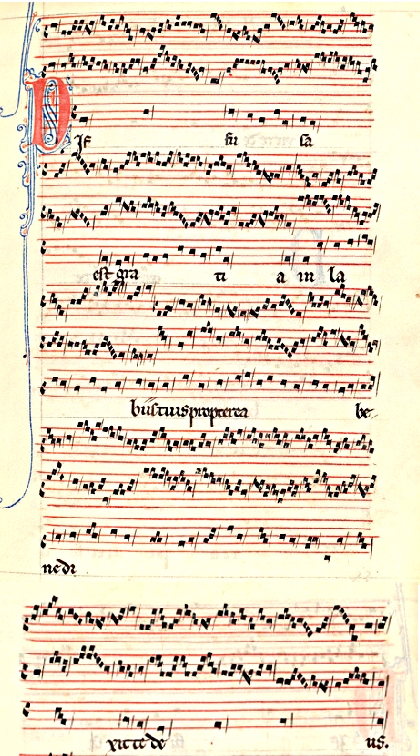 Dif fu sa
est gra ti a in la
bus tuis propterea be
nedi
xit te de us.